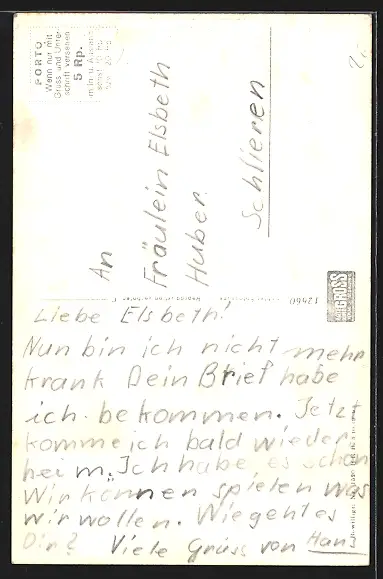 PORTO
Wenn nur mit
Gruss und Unter-
schrift versehen
5 Rp.
An
Fräulein Elsbeth
Huber
Schlieren
12460
GROSS
Liebe Elsbeth!
Nun bin ich nicht mehr
krank Dein Brief habe
ich bekommen. Jetzt
komme ich bald wieder
heim. Ich habe es schön
Wir können spielen was
wir wollen. Wie geht es
Dir? Viele Grüss von